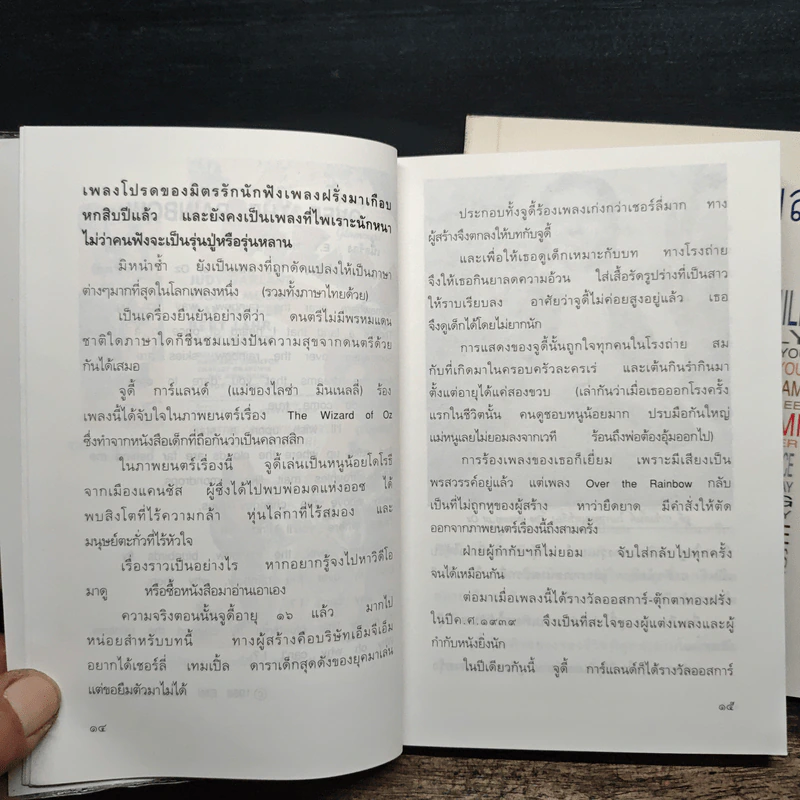 เพลงโปรดของมิตรรักนักฟังเพลงฝรั่งมาเกือบ
หกสิบปีแล้ว และยังคงเป็นเพลงที่ไพเราะนักหนา
ไม่ว่าคนฟังจะเป็นรุ่นปู่หรือรุ่นหลาน
มิหนำซ้ำ ยังเป็นเพลงที่ถูกดัดแปลงให้เป็นภาษา
ต่างๆมากที่สุดในโลกเพลงหนึ่ง (รวมทั้งภาษาไทยด้วย)
เป็นเครื่องยืนยันอย่างดีว่า ดนตรีไม่มีพรหมแดน
ชาติใดภาษาใดก็ชื่นชมแบ่งปันความสุขจากดนตรีด้วย
กันได้เสมอ
จูดี้ การ์แลนด์ (แม่ของไลซ่า มินเนลลี่) ร้อง
เพลงนี้ได้จับใจในภาพยนตร์เรื่อง The Wizard of Oz
ซึ่งทำจากหนังสือเด็กที่ถือกันว่าเป็นคลาสสิก
ในภาพยนตร์เรื่องนี้ จูดี้เล่นเป็นหนูน้อยโดโรธี
จากเมืองแคนซัส ผู้ซึ่งได้ไปพบพ่อมดแห่งออซ ได้
พบสิงโตที่ไร้ความกล้า หุ่นไล่กาที่ไร้สมอง และ
มนุษย์ตะกั่วที่ไร้หัวใจ
เรื่องราวเป็นอย่างไร หากอยากรู้จงไปหาวิดีโอ
มาดู หรือซื้อหนังสือมาอ่านเอาเอง
ความจริงตอนนั้นจูดี้อายุ ๑๖ แล้ว มากไป
หน่อยสำหรับบทนี้ ทางผู้สร้างคือบริษัทเอ็มจีเอ็ม
อยากได้เชอร์ลี่ เทมเปิ้ล ดาราเด็กสุดดังของยุคมาเล่น
แต่ขอยืมตัวมาไม่ได้
๑๔
ประกอบทั้งจูดี้ร้องเพลงเก่งกว่าเชอร์ลี่มาก ทาง
ผู้สร้างจึงตกลงให้บทกับจูดี้
และเพื่อให้เธอดูเด็กเหมาะกับบท ทางโรงถ่าย
จึงให้เธอกินยาลดความอ้วน ใส่เสื้อรัดรูปร่างที่เป็นสาว
ให้ราบเรียบลง อาศัยว่าจูดี้ไม่ค่อยสูงอยู่แล้ว เธอ
จึงดูเด็กได้โดยไม่ยากนัก
การแสดงของจูดี้นั้นถูกใจทุกคนในโรงถ่าย สม
กับที่เกิดมาในครอบครัวละครเร่ และเต้นกินรำกินมา
ตั้งแต่อายุได้แค่สองขวบ (เล่ากันว่าเมื่อเธอออกโรงครั้ง
แรกในชีวิตนั้น คนดูชอบหนูน้อยมาก ปรบมือกันใหญ่
แม่หนูเลยไม่ยอมลงจากเวที ร้อนถึงพ่อต้องอุ้มออกไป)
การร้องเพลงของเธอก็เยี่ยม เพราะมีเสียงเป็น
พรสวรรค์อยู่แล้ว แต่เพลง Over the Rainbow กลับ
เป็นที่ไม่ถูกหูของผู้สร้าง หาว่ายืดยาด มีคำสั่งให้ตัด
ออกจากภาพยนตร์เรื่องนี้ถึงสามครั้ง
ฝ่ายผู้กำกับฯก็ไม่ยอม จับใส่กลับไปทุกครั้ง
จนได้เหมือนกัน
ต่อมาเมื่อเพลงนี้ได้รางวัลออสการ์-ตุ๊กตาทองฝรั่ง
ในปีค.ศ.๑๙๓๙ จึงเป็นที่สะใจของผู้แต่งเพลงและผู้
กำกับหนังยิ่งนัก
ในปีเดียวกันนี้ จูดี้ การ์แลนด์ก็ได้รางวัลออสการ์
๑๕